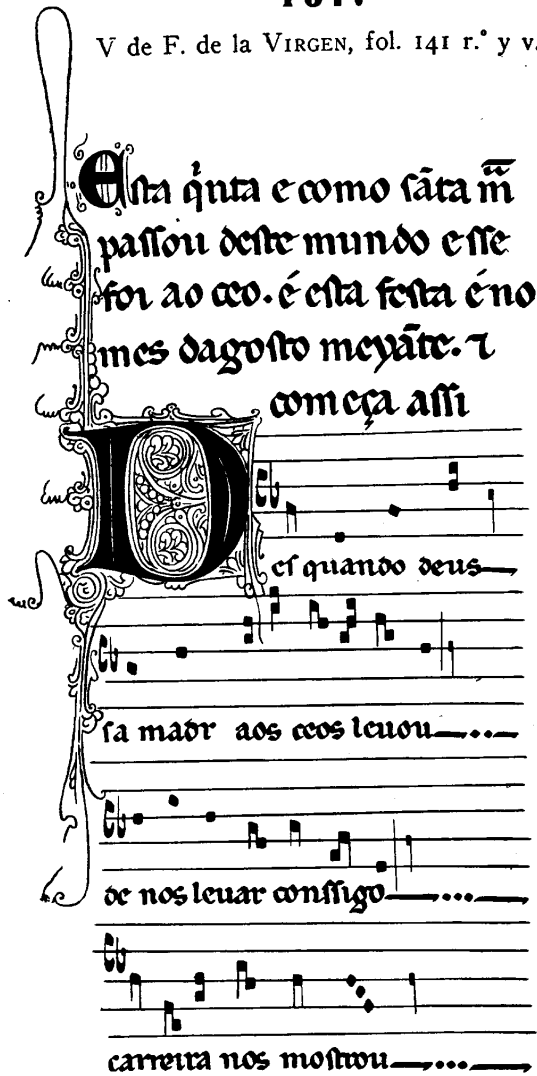 V de F. de la VIRGEN, fol. 141 r.º y v.
Esta q̇nta e como sãta m̃
passou deste mundo e sse
foi ao ceo. é esta festa é no
mes dagosto meyãte. ⁊
começa assi
Des quando deus
sa madr aos ceos leuou
de nos leuar conssigo
carreira nos mostrou